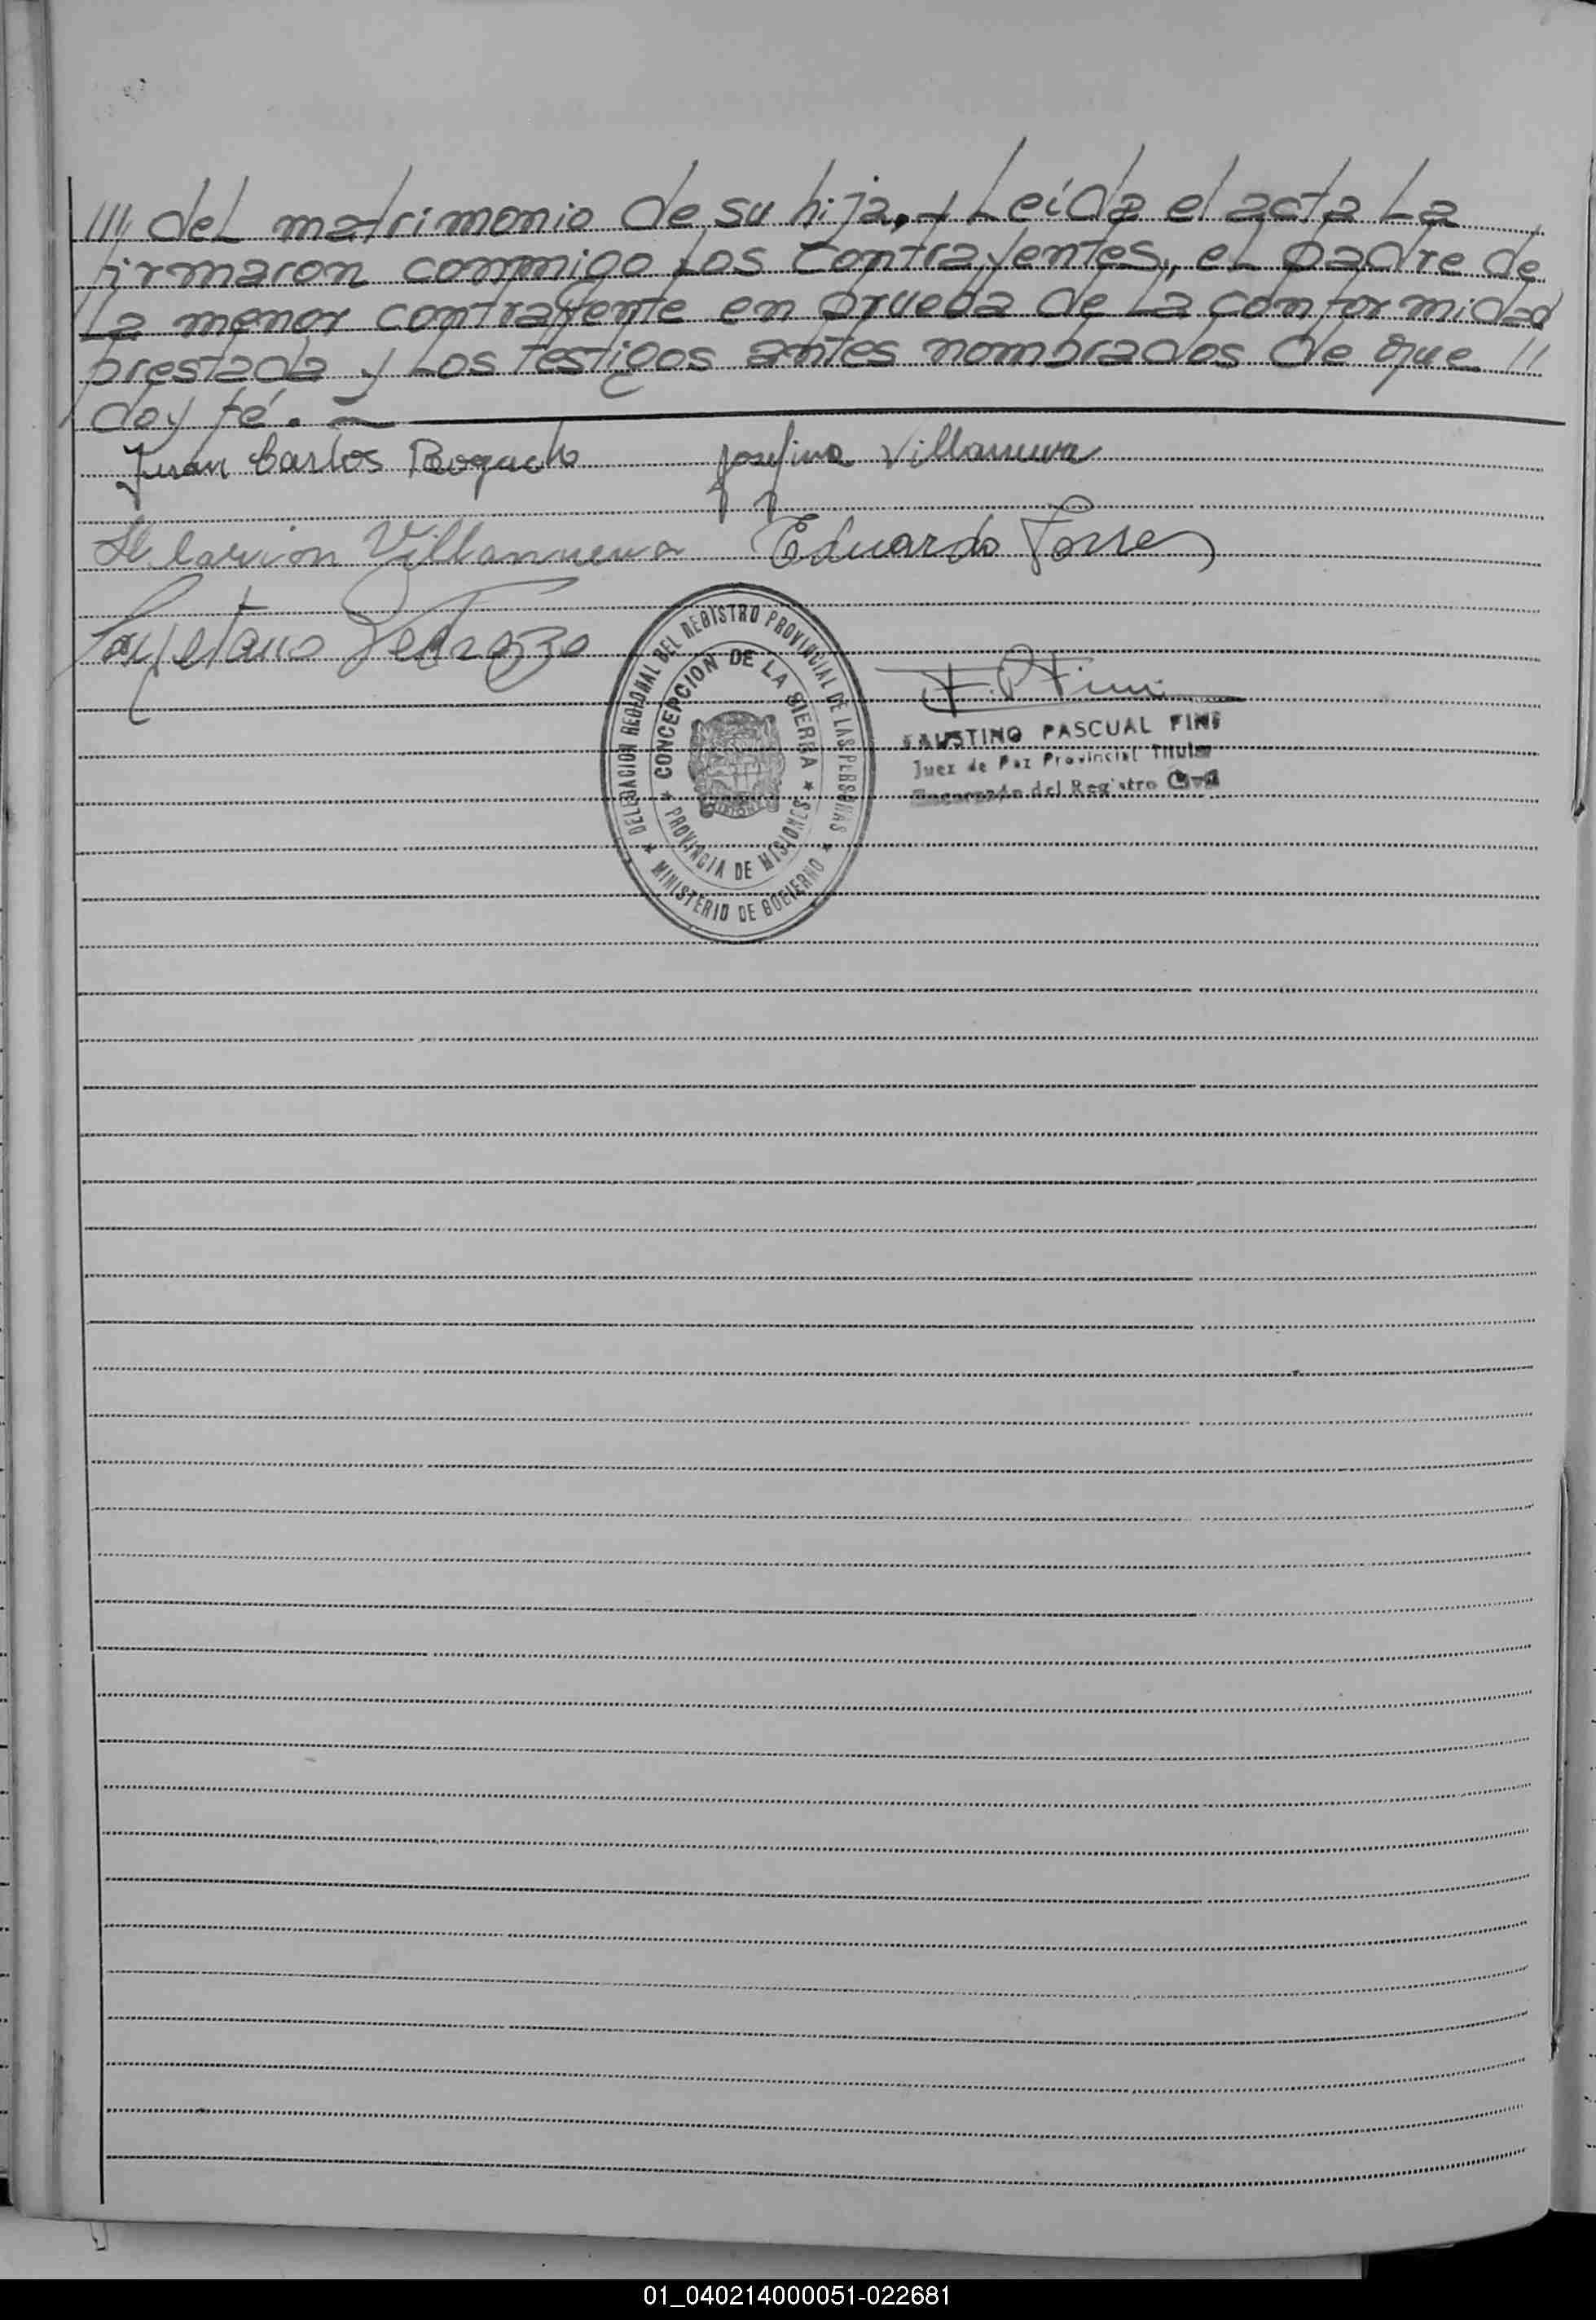 //// del matrimonio de su hija, y Leída el acta La
firmaron conmigo Los Contrayentes, el padre de
La menor contrayente en prueba de La conformidad
prestada y Los testigos antes nombrados de que //
doy fé. ~
Juan Carlos Rogacho
Josefina Villanueva
Hilarion Villanueva
Eduardo Torres
Cayetano Pedrozo
F. P Fini
FAUSTINO PASCUAL FINI
Juez de Paz Provincial Titular
Encargado del Registro Civil
DELEGACION REGIONAL DEL REGISTRO PROVINCIAL DE LAS PERSONAS
★ MINISTERIO DE GOBIERNO ★
★ CONCEPCION DE LA SIERRA ★
PROVINCIA DE MISIONES
01_040214000051-022681